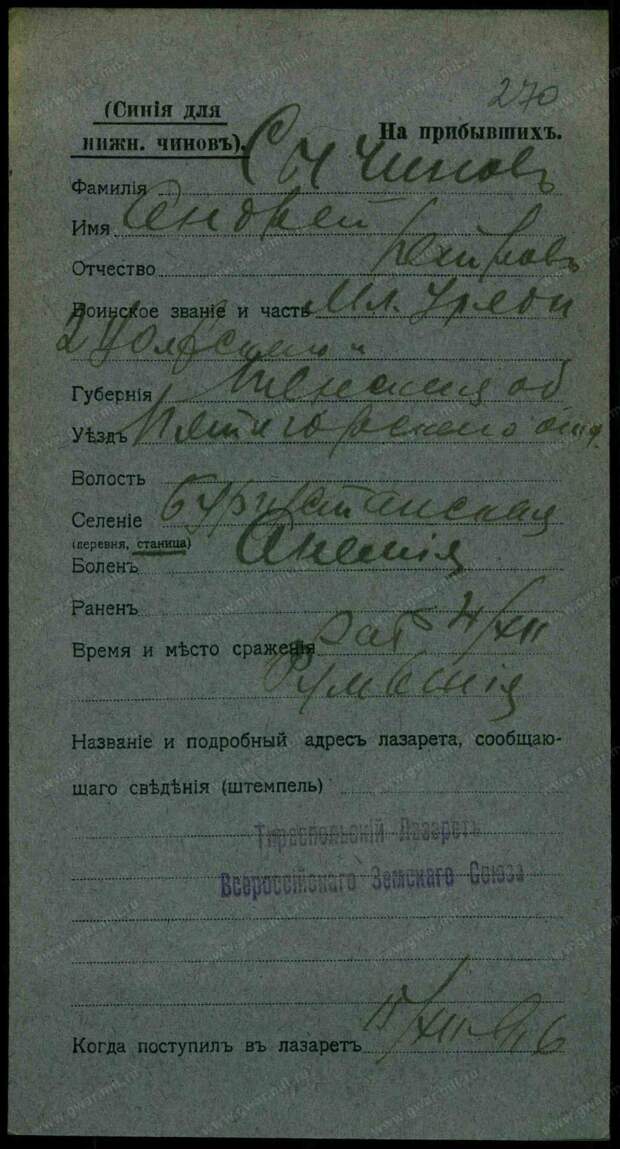 270
(Синія для
нижн. чиновъ).
На прибывшихъ.
Фамилія Сычиновъ
Имя Андрей
Отчество
Воинское званіе и часть Мл. Уряд
2
Губернія Терская об
Уѣздъ Пятигорскаго отд.
Волость
Селеніе Бургустанская
(деревня, станица)
Боленъ Анемія
Раненъ
Время и мѣсто сраженія Заб 4/XII
Румынія
Названіе и подробный адресъ лазарета, сообщаю-
щаго свѣдѣнія (штемпель)
Тираспольскій Лазаретъ
Всероссійскаго Земскаго Союза
Когда поступилъ въ лазаретъ 15/XII 916